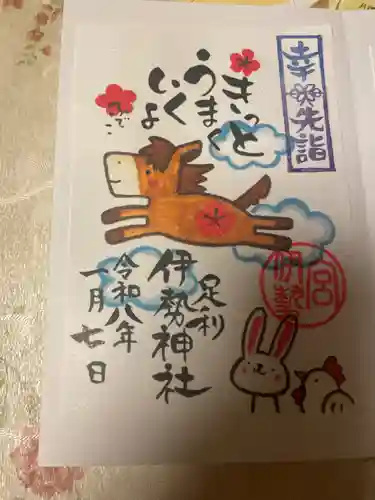 幸先詣
きっと
うまく
いくよ
足利
伊勢神社
令和八年
一月七日
伊勢宮